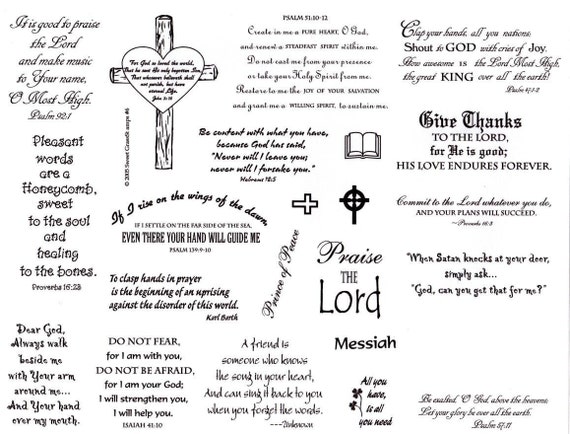 It is good to praise
the Lord
and make music
to Your name,
O Most High.
Psalm 92:1
For God so loved the world,
That he sent His only begotten Son,
That whosoever believeth shall
not perish, but have
eternal Life.
John 3:16
© 2005 Sweet Grass Stamps #6
PSALM 51:10-12
Create in me a PURE HEART, O God,
and renew a STEADFAST SPIRIT within me.
Do not cast me from your presence
or take your Holy Spirit from me.
Restore to me the JOY OF YOUR SALVATION
and grant me a WILLING SPIRIT, to sustain me.
Clap your hands, all you nations;
Shout to GOD with cries of Joy.
How awesome is the Lord Most High,
the great KING over all the earth!
Psalm 47:1-2
Be content with what you have,
because God has said,
"Never will I leave you;
never will I forsake you."
Hebrews 13:5
Give Thanks
TO THE LORD,
for He is good;
HIS LOVE ENDURES FOREVER.
Pleasant
words
are a
Honeycomb,
sweet
to the soul
and
healing
to the bones.
Proverbs 16:23
If I rise on the wings of the dawn,
IF I SETTLE ON THE FAR SIDE OF THE SEA,
EVEN THERE YOUR HAND WILL GUIDE ME
PSALM 139:9-10
Commit to the Lord whatever you do,
AND YOUR PLANS WILL SUCCEED.
~Proverbs 16:3
Prince of Peace
Praise
THE
Lord
"When Satan knocks at your door,
simply ask...
"God, can you get that for me?"
To clasp hands in prayer
is the beginning of an uprising
against the disorder of this world.
Karl Barth
Dear God,
Always walk
beside me
with Your arm
around me...
And Your hand
over my mouth.
DO NOT FEAR,
for I am with you,
DO NOT BE AFRAID,
for I am your God;
I will strengthen you,
I will help you.
ISAIAH 41:10
A friend is
someone who knows
the song in your heart,
And can sing it back to you
when you forget the words.
---Unknown
Messiah
All you
have,
is all
you need
Be exalted, O God, above the heavens;
Let your glory be over all the earth.
Psalm 57:11